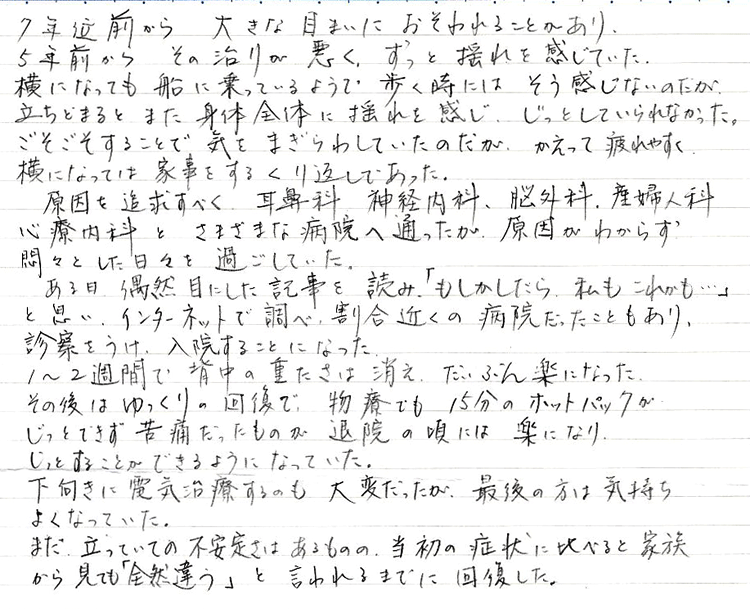 7年位前から 大きな目まいに おそわれることがあり、
5年前から その治りが 悪く、ずっと 揺れを 感じていた。
横になっても 船に 乗っているようで 歩く時には そう感じないのだが、
立ちどまると また 身体全体に 揺れを 感じ、じっとしていられなかった。
ごそごそすることで 気を まぎらわしていたのだが、かえって 疲れやすく
横になっては 家事をする くり返しであった。
原因を 追求すべく、耳鼻科、神経内科、脳外科、産婦人科
心療内科と さまざまな 病院へ 通ったが、原因が わからず
悶々とした日々を 過ごしていた。
ある日、偶然 目にした 記事を 読み、「もしかしたら、私も これかも…」
と思い、インターネットで 調べ、割合 近くの 病院だったこともあり、
診察をうけ、入院することに なった。
1～2週間で 背中の 重たさは 消え、だいぶん 楽になった。
その後は ゆっくりの 回復で、物療でも 15分の ホットパックが
じっとできず 苦痛だったものが 退院の頃には 楽になり、
じっとすることが できるように なっていた。
下向きに 電気治療するのも 大変だったが、最後の方は 気持ち
よくなっていた。
まだ、立っていての 不安定さは あるものの、当初の 症状に 比べると 家族
から 見ても「全然違う」と 言われるまでに 回復した。